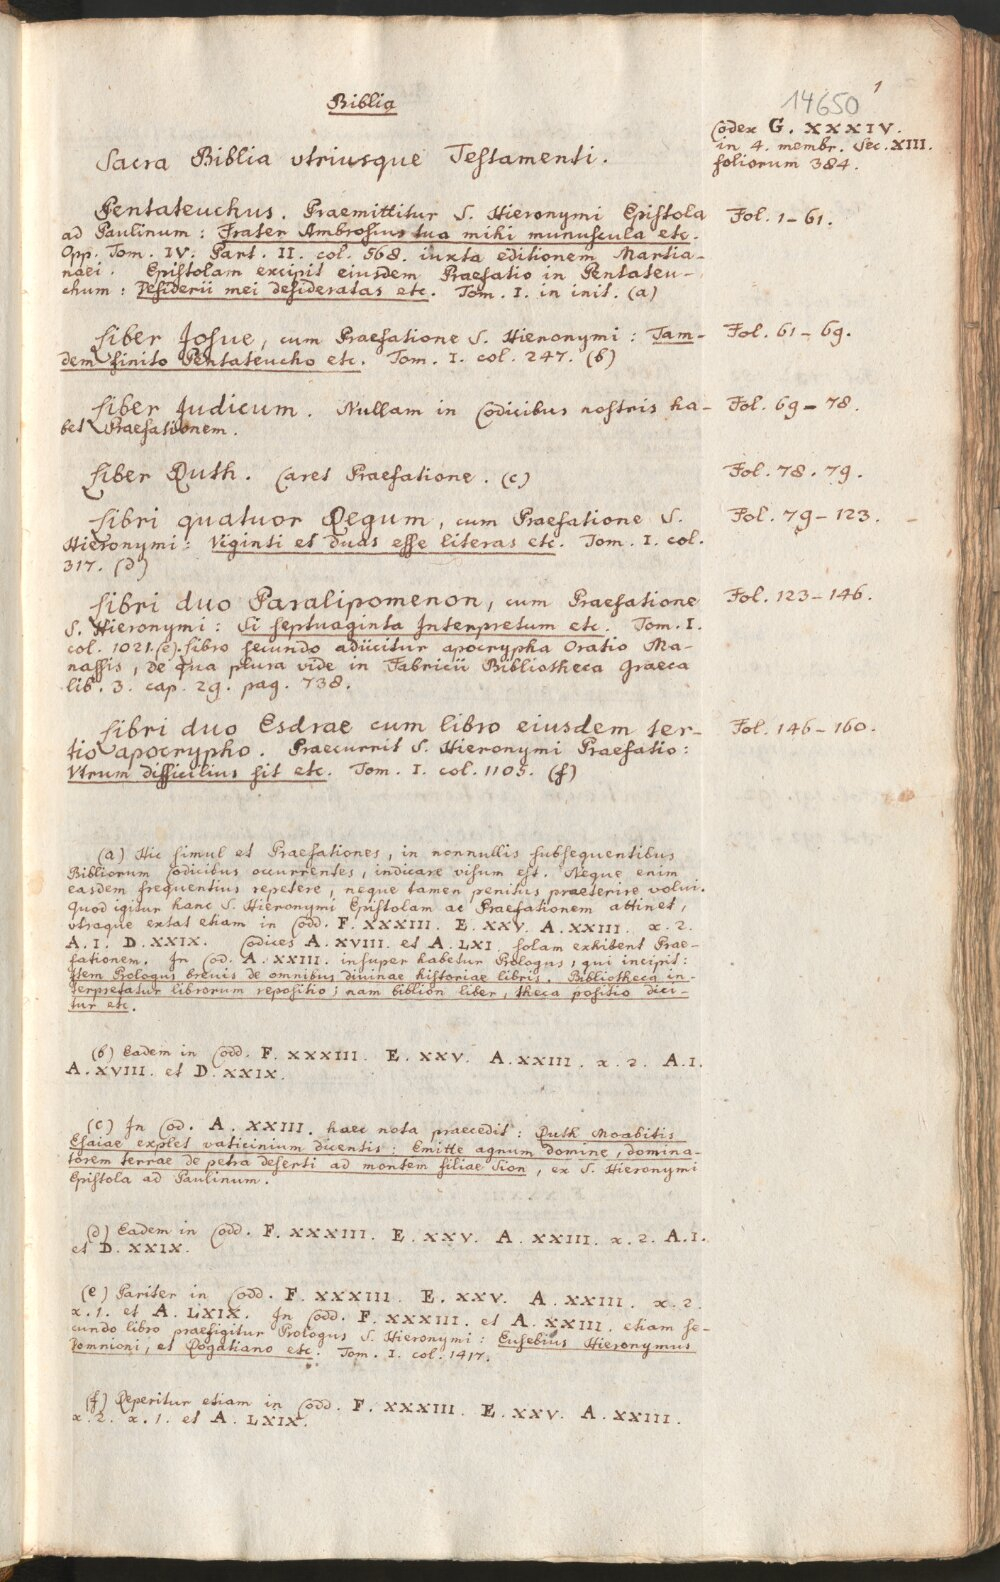 1
Biblia
14650
Codex G. XXXIV.
in 4. membr. Sec. XIII.
foliorum 384.
Sacra Biblia vtriusque Testamenti.
Pentateuchus. Praemittitur S. Hieronymi Epistola
Fol. 1-61.
ad Paulinum: Frater Ambrosius tua mihi munuscula etc.
Opp. Tom. IV. Part. II. col. 568. iuxta editionem Martia-
naei. Epistolam excipit eiusdem Praefatio in Pentateu-
chum: Desiderii mei desideratas etc. Tom. I. in init. (a)
Liber Josue, cum Praefatione S. Hieronymi: Tam-
Fol. 61-69.
dem finito Pentateucho etc. Tom. I. col. 247. (b)
Liber Judicum. Nullam in Codicibus nostris ha-
Fol. 69-78.
bet Praefationem.
Liber Ruth. Caret Praefatione. (c)
Fol. 78. 79.
Libri quatuor Regum, cum Praefatione S.
Fol. 79-123.
Hieronymi: Viginti et duas esse literas etc. Tom. I. col.
317. (d)
Libri duo Paralipomenon, cum Praefatione
Fol. 123-146.
S. Hieronymi: Si septuaginta Interpretum etc. Tom. I.
col. 1021. (e). Libro secundo adiicitur apocrypha Oratio Ma-
nassis, de qua plura vide in Fabricii Bibliotheca Graeca
lib. 3. cap. 29. pag. 738.
Libri duo Esdrae cum libro eiusdem ter-
Fol. 146-160.
tio apocrypho. Praecurrit S. Hieronymi Praefatio:
Vtrum difficilius sit etc. Tom. I. col. 1105. (f)
(a) Hic simul et Praefationes, in nonnullis subsequentibus
Bibliorum Codicibus occurrentes, indicare visum est. Neque enim
easdem frequentius repetere, neque tamen penitus praeterire volui.
Quod igitur hanc S. Hieronymi Epistolam ac Praefationem attinet,
vtraque extat etiam in Codd. F. XXXIII. E. XXV. A. XXIII. α. 2.
A. I. D. XXIX. Codices A. XVIII. et A. LXI. solam exhibent Prae-
fationem. In Cod. A. XXIII. insuper habetur Prologus, qui incipit:
Item Prologus breuis de omnibus diuinae historiae libris. Bibliotheca in-
terpretatur librorum repositio; nam biblion liber, theca positio dici-
tur etc.
(b) Eadem in Codd. F. XXXIII. E. XXV. A. XXIII. α. 2. A. I.
A. XVIII. et D. XXIX.
(c) In Cod. A. XXIII. haec nota praecedit: Ruth Moabitis
Esaiae explet vaticinium dicentis: Emitte agnum domine, domina-
torem terrae de petra deserti ad montem filiae Sion, ex S. Hieronymi
Epistola ad Paulinum.
(d) Eadem in Codd. F. XXXIII. E. XXV. A. XXIII. α. 2. A. I.
et D. XXIX.
(e) Pariter in Codd. F. XXXIII. E. XXV. A. XXIII. α. 2.
α. 1. et A. LXIX. In Codd. F. XXXIII. et A. XXIII. etiam se-
cundo libro praefigitur Prologus S. Hieronymi: Eusebius Hieronymus
Domnioni, et Rogatiano etc. Tom. I. col. 1417.
(f) Reperitur etiam in Codd. F. XXXIII. E. XXV. A. XXIII.
α. 2. α. 1. et A. LXIX.